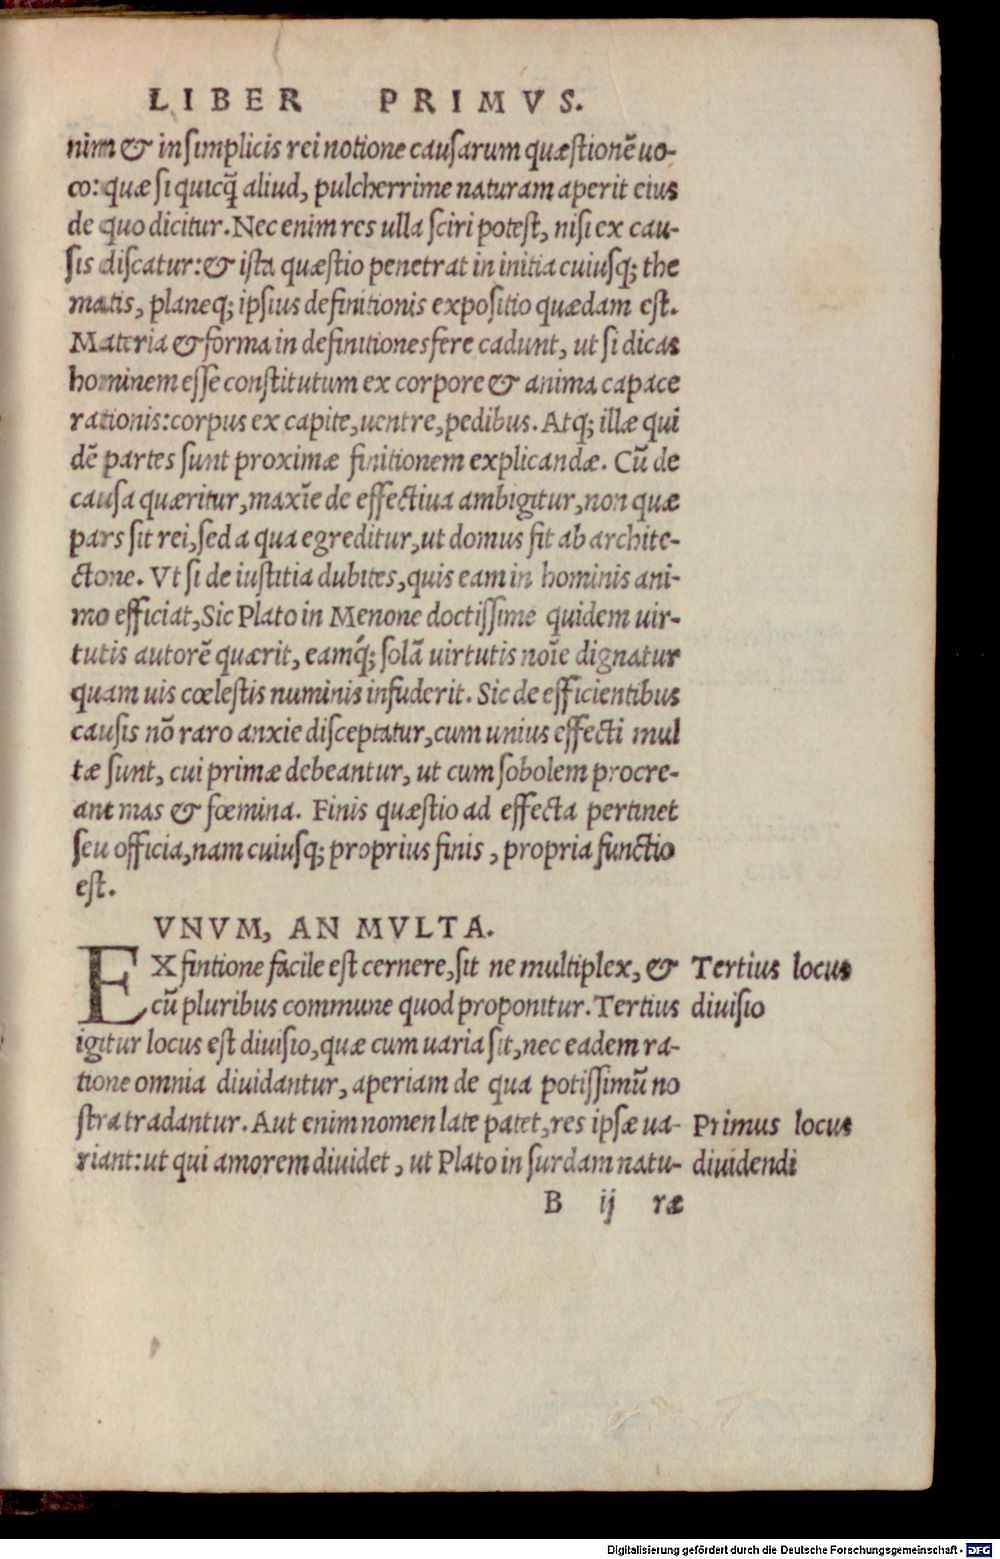 LIBER PRIMVS.
nim & in simplicis rei notione causarum quæstionē uo-
co: quæ si quicq̃ aliud, pulcherrime naturam aperit eius
de quo dicitur. Nec enim res ulla sciri potest, nisi ex cau-
sis discatur: & ista quæstio penetrat in initia cuiusq; the
matis, planeq; ipsius definitionis expositio quædam est.
Materia & forma in definitiones fere cadunt, ut si dicas
hominem esse constitutum ex corpore & anima capace
rationis: corpus ex capite, uentre, pedibus. Atq; illæ qui
dē partes sunt proximæ finitionem explicandæ. Cū de
causa quæritur, maxīe de effectiua ambigitur, non quæ
pars sit rei, sed a qua egreditur, ut domus fit ab archite-
ctone. Vt si de iustitia dubites, quis eam in hominis ani-
mo efficiat, Sic Plato in Menone doctissime quidem uir-
tutis autorē quærit, eamq́; solā uirtutis noīe dignatur
quam uis cœlestis numinis infuderit. Sic de efficientibus
causis nō raro anxie disceptatur, cum unius effecti mul
tæ sunt, cui primæ debeantur, ut cum sobolem procre-
ant mas & fœmina. Finis quæstio ad effecta pertinet
seu officia, nam cuiusq; proprius finis, propria functio
est.
VNVM, AN MVLTA.
EX fintione facile est cernere, sit ne multiplex, & Tertius locus
cū pluribus commune quod proponitur. Tertius diuisio
igitur locus est diuisio, quæ cum uaria sit, nec eadem ra-
tione omnia diuidantur, aperiam de qua potissimū no
stra tradantur. Aut enim nomen late patet, res ipsæ ua- Primus locus
riant: ut qui amorem diuidet, ut Plato in surdam natu- diuidendi
B ij ræ
Digitalisierung gefördert durch die Deutsche Forschungsgemeinschaft - DFG